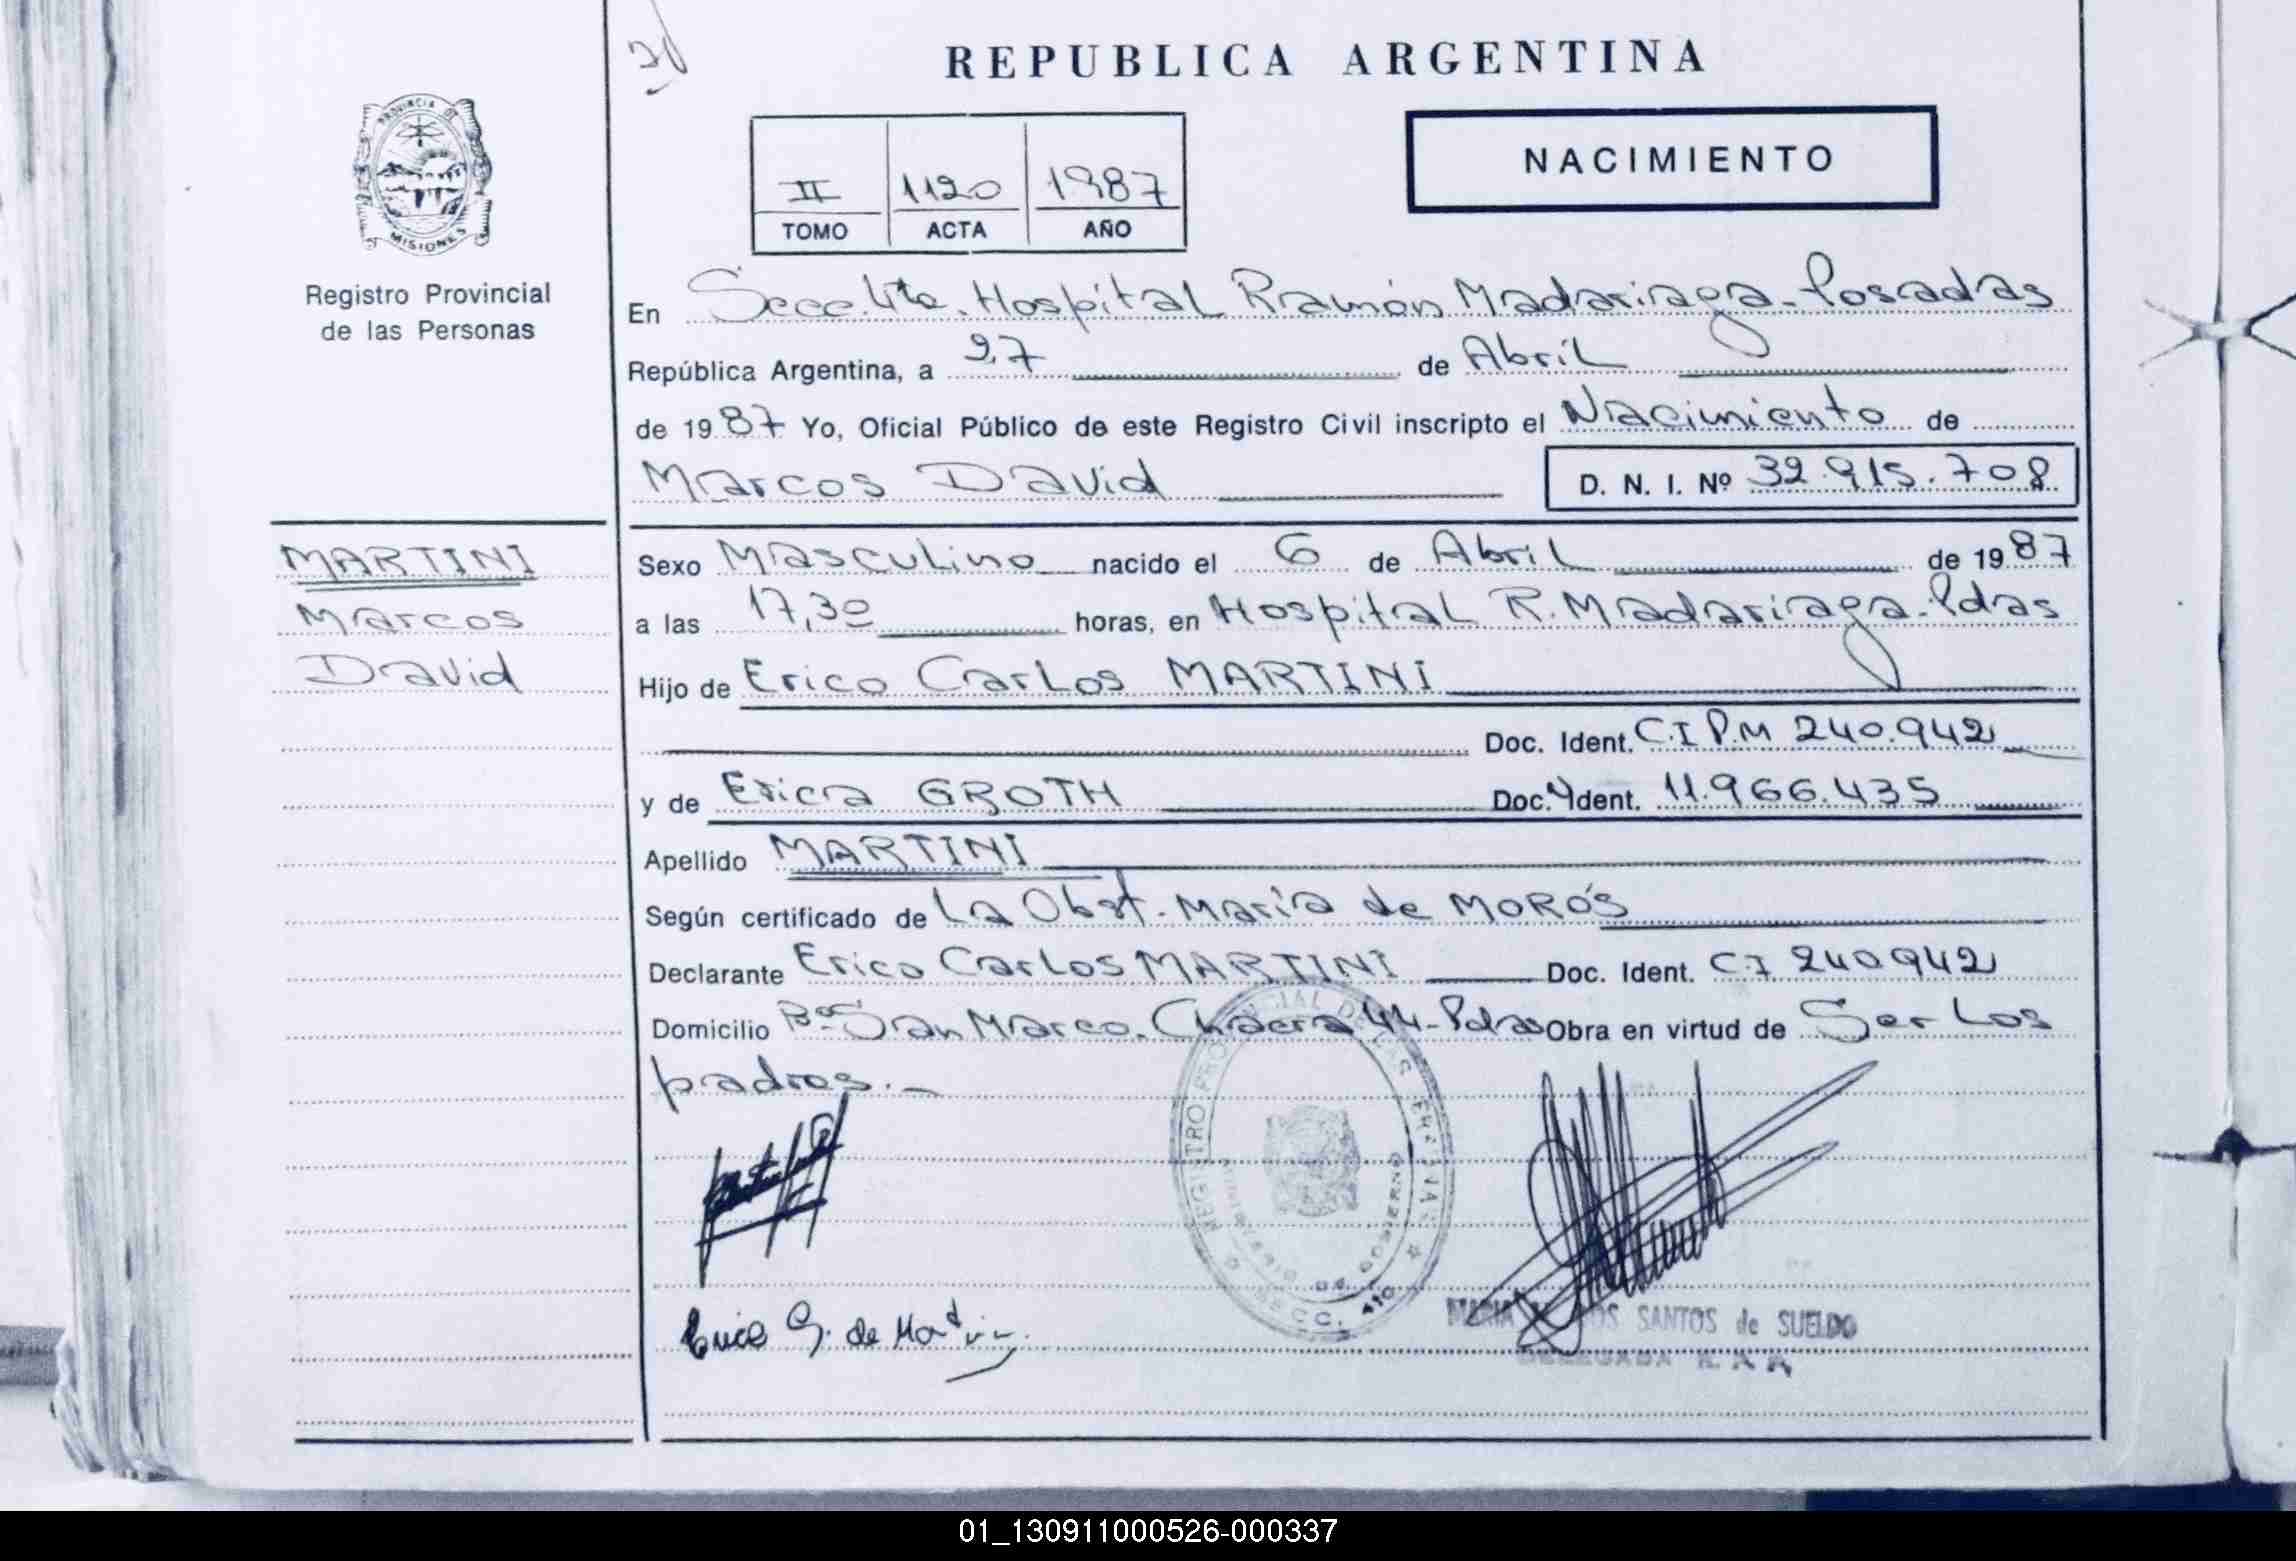 REPUBLICA ARGENTINA
PROVINCIA DE MISIONES
Registro Provincial
de las Personas
II 1120 1987
TOMO ACTA AÑO
NACIMIENTO
En Secc. 4ta. Hospital Ramón Madariaga - Posadas
República Argentina, a 27 de Abril
de 1987 Yo, Oficial Público de este Registro Civil inscripto el Nacimiento de
Marcos David D. N. I. Nº 32.915.708
MARTINI
Marcos
David
Sexo Masculino nacido el 6 de Abril de 1987
a las 17,30 horas, en Hospital R. Madariaga - Pdas
Hijo de Erico Carlos MARTINI
Doc. Ident. C.I P.M 240.942
y de Erica GROTH Doc. Ident. 11.966.435
Apellido MARTINI
Según certificado de La Obst. María de MOROS
Declarante Erico Carlos MARTINI Doc. Ident. C.I 240942
Domicilio Bº San Marco. Chacra 44 - Pdas Obra en virtud de Ser los
padres. -
REGISTRO PROVINCIAL DE LAS PERSONAS
MINISTERIO DE GOBIERNO
SECC. 4ta
Erica G. de Martini.
MARIA SANTOS de SUELDO
DELEGADA
01_130911000526-000337